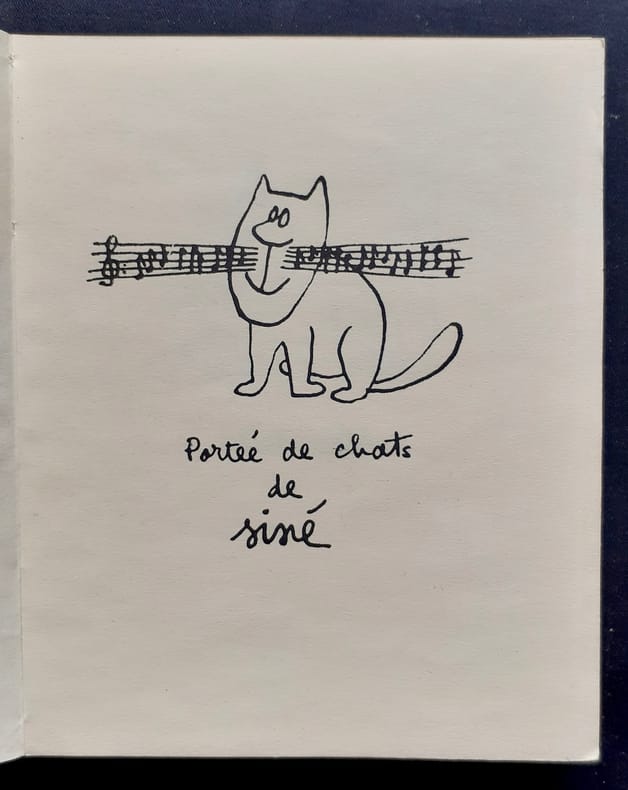 Porteé de chats
de
siné